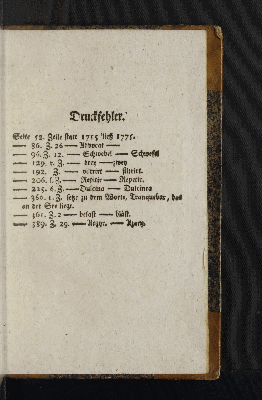 Druckfehler.
Seite 52. Zeile statt 1715 ließ 1775.
— 86. Z. 26 — Advocat —
— 96. Z. 12. — Schwebel — Schwefel
— 129. r. Z. — drey — zwey
— 192. Z. —
— 206. l. Z. — Repetie — Repetir.
— 225. 6. Z. — Dulcina — Dulcinea
— 360. 1. Z. setze zu dem Worte, Tranquebar, das
an der See liegt.
— 361. Z. 2 — — bläst.
— 389. Z. 29. —